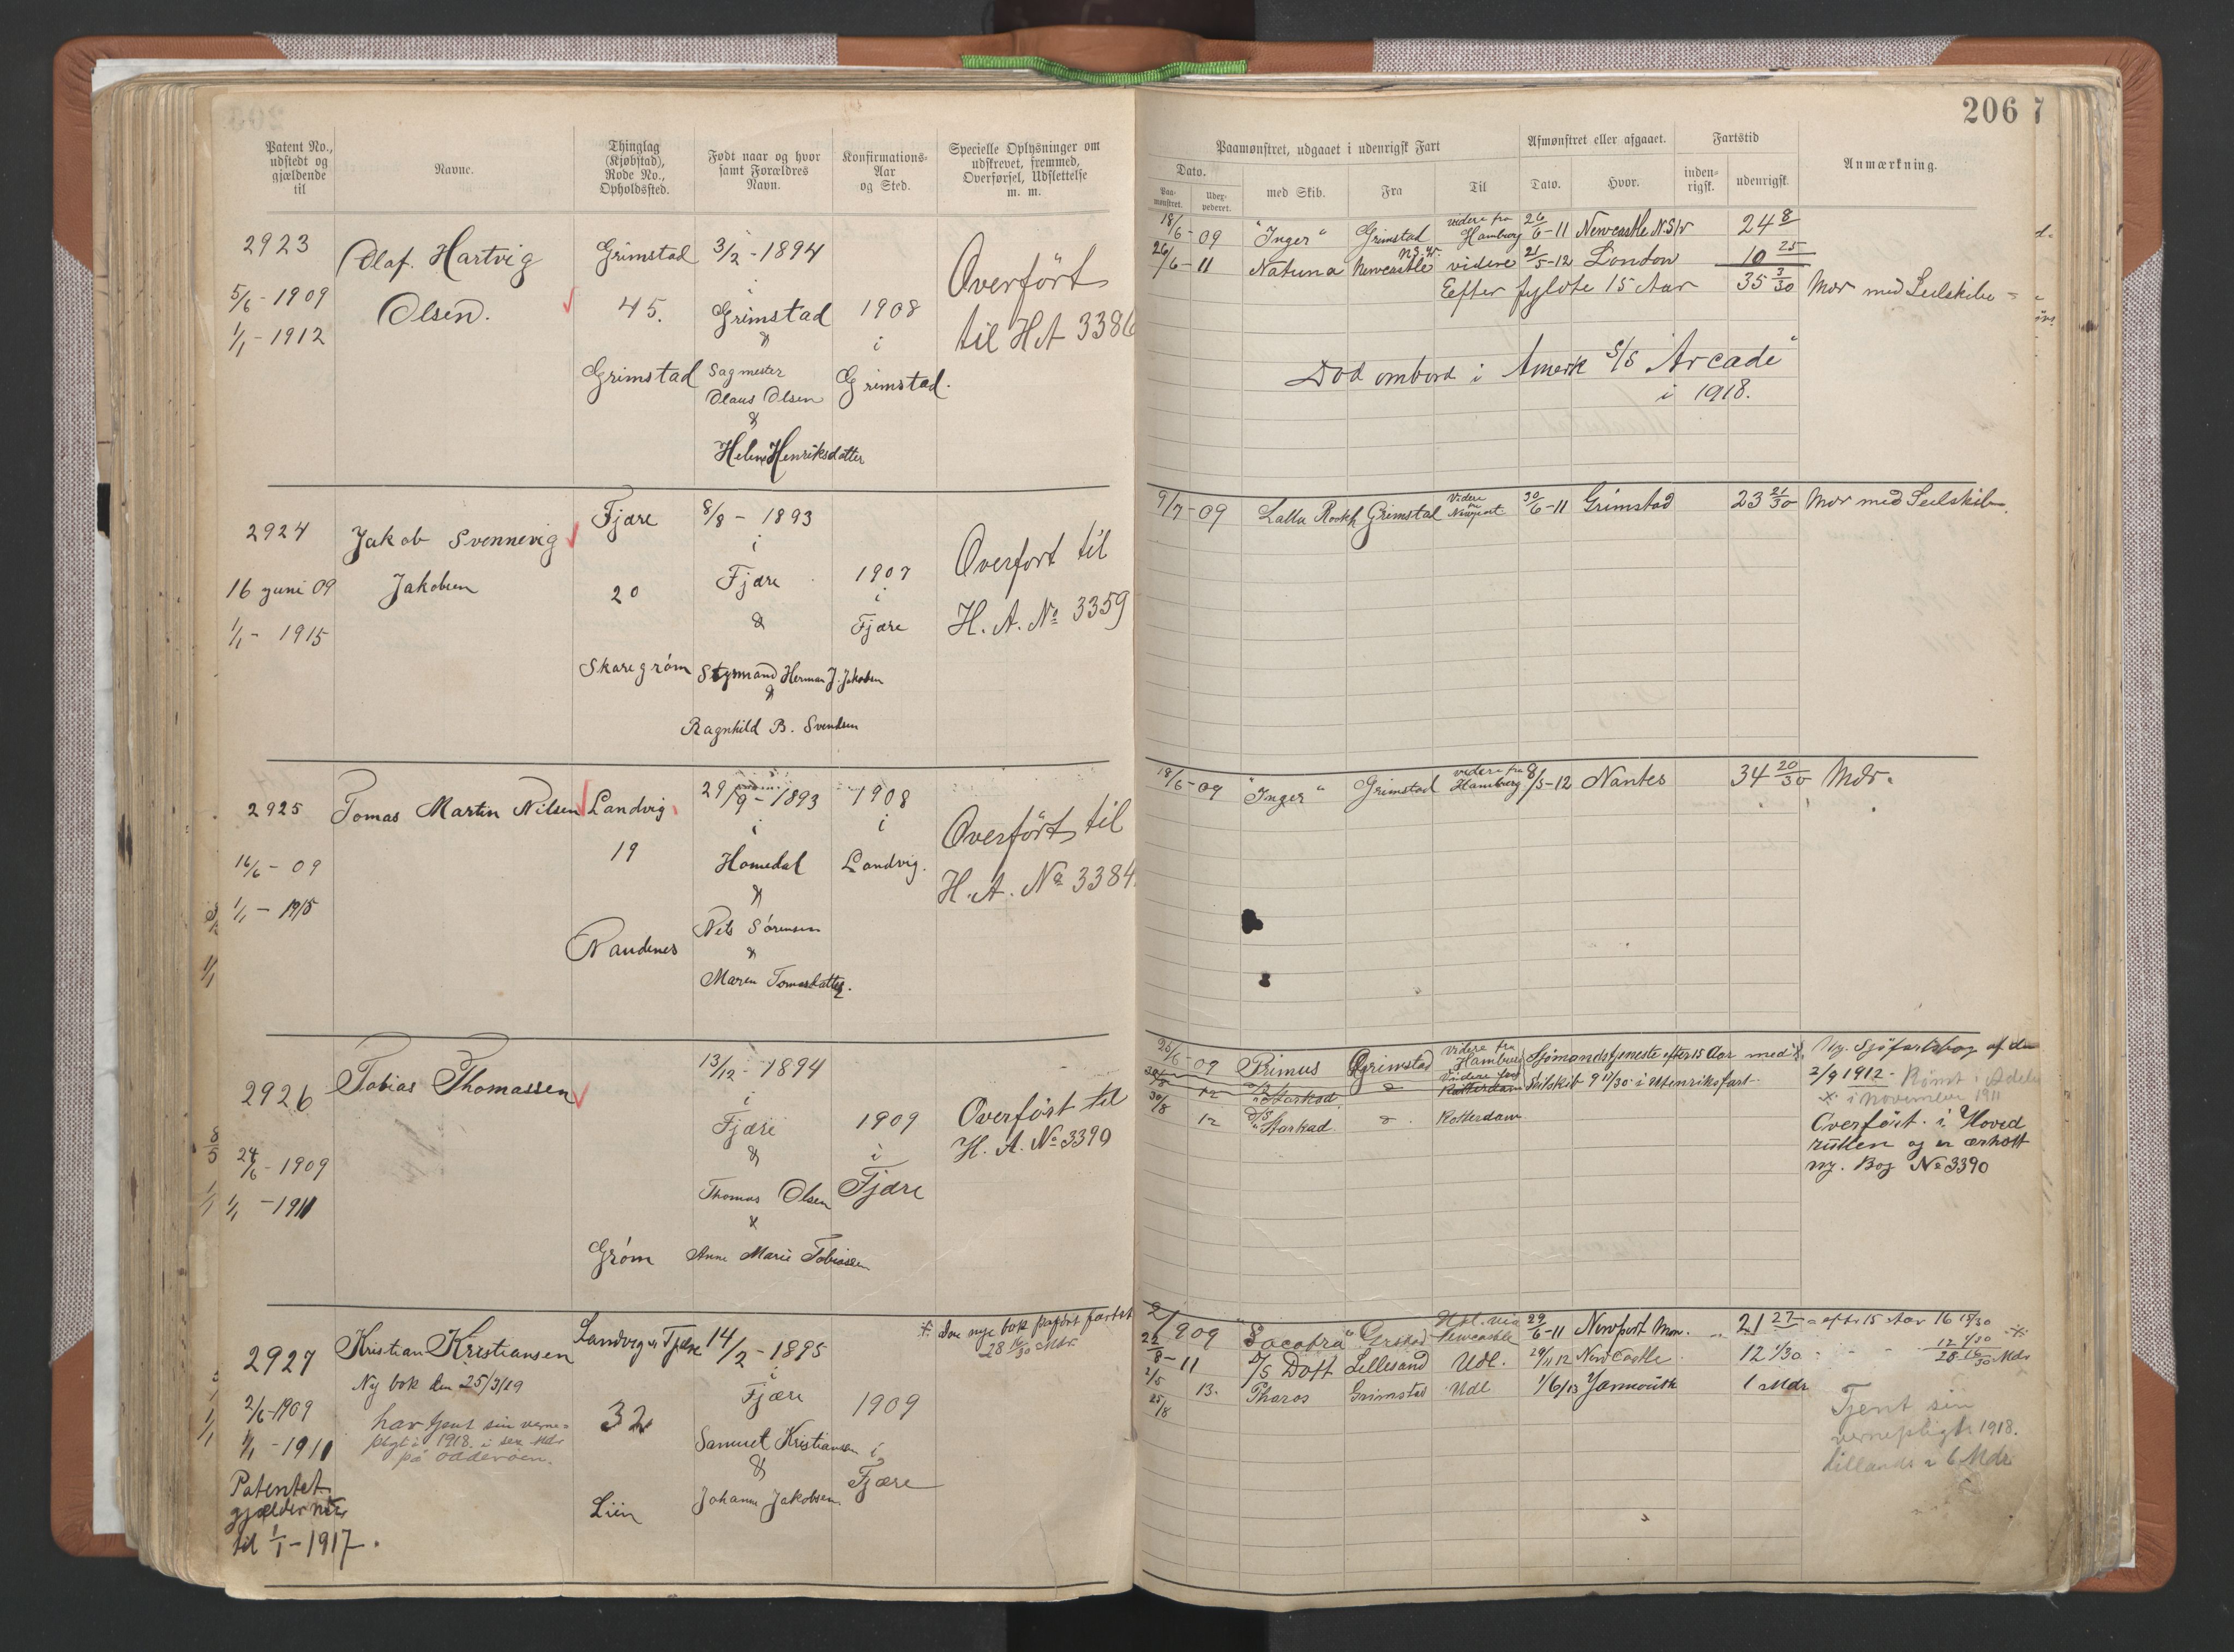 206
Patent No., udstedt og gjældende til
Navne.
Thinglag (Kjøbstad), Rode No., Opholdssted.
Født naar og hvor samt Forældres Navn.
Konfirmations-Aar og Sted.
Specielle Oplysninger om udskrevet, fremmed, Overførsel, Udslettelse m. m.
Paamønstret, udgaaet i udenrigsk Fart
Dato.
Paamønstret.
med Skib.
Fra
Til
Afmønstret eller afgaaet.
Dato.
Hvor.
Fartstid
indenrigsk.
udenrigsk.
Anmærkning.
2923
5/6 - 1909
1/1 - 1912
Olaf. Hartvig
Olsen.
Grimstad
45.
Grimstad
3/2 - 1894
i
Grimstad
&
Sagmester
Olaus Olsen
&
Helene Henriksdatter
1908
i
Grimstad.
Overført
til HA 3386
18/6 - 09 "Inger" Grimstad videre fra Hamburg 26/6 - 11 Newcastle N.S.W 24 8
26/6 - 11 Natuna Newcastle N.S.W. videre 21/5 - 12 London 10 25
Efter fyldte 15 Aar 35 3/30 Mdr med Seilskibe
Död ombord i Amerk S/S "Arcade"
i 1918.
2924
16 juni 09
1/1 - 1915
Jakob Svennevig
Jakobsen
Fjære
20
Skaregrøm
8/8 - 1893
i
Fjære
&
Styrmand Herman J. Jakobsen
&
Ragnhild B. Svendsen
1907
i
Fjære
Overført til
H. A. No 3359
9/7 - 09 Lalla Rookh Grimstad Videre Newport 30/6 - 11 Grimstad 23 21/30 Mdr med Seilskibe.
2925
16/6 - 09
1/1 - 1915
Tomas Martin Nilsen
Landvig
19
29/9 - 1893
i
Homedal
&
Nels Sørensen
&
Maren Tomasdatter.
1908
i
Landvig.
Overført til
H. A. No 3384
18/6 - 09 "Inger" Grimstad videre fra Hamburg 8/5 - 12 Nantes 34 20/30 Mdr.
2926
24/6 - 1909
1/1 - 1911
Tobias Thomassen
Grøm
13/12 - 1894
i
Fjære
&
Thomas Olsen
&
Anne Marie Tobiassen
1909
i
Fjære
Overført til
H. A. No 3390
25/6 09 Primus Grimstad videre fra Hamburg Sjömandstjeneste efter 15 Aar med
12 Starkad Rotterdam Seilskib 9 11/30 i Utenriksfart
30/8 12 D/S "Starkad Rotterdam
Ny. Sjøfartsbog af den
2/9 1912 - Römt i
i November 1911
Overført i Hoved
rullen og er
ny. Bog No 3390
2927
2/6 - 1909
1/1 - 1911
Patentet
gjælder
til 1/1 - 1917.
Kristian Kristiansen
Ny bok den 25/3/19
har tjent sin verne=
pligt i 1918. i sex Mdr
på Odderöen.
Landvig Fjære
32
Lien
14/2 - 1895
i
Fjære
Samuel Kristiansen
&
Johanne Jakobsen
1909
i
Fjære
Den nye bok paført fartst
28 16/30 Mdr.
2/ 909 "Socotra" Udl. via Newcastle 29/6 - 11 Newport Mon. 21 27 efter 15 Aar 16 15/30
22/8 - 11 D/S Dott Lillesand Udl. 29/11 12 New Castle 12 1/30 12 1/30
28 16/30 Mdr
2/5 13. Pharos Grimstad Udl 1/6/13 Yarmouth 1 Mdr
25/8
Tjent sin
vernepligt 1918.
tillands i 6 Mdr